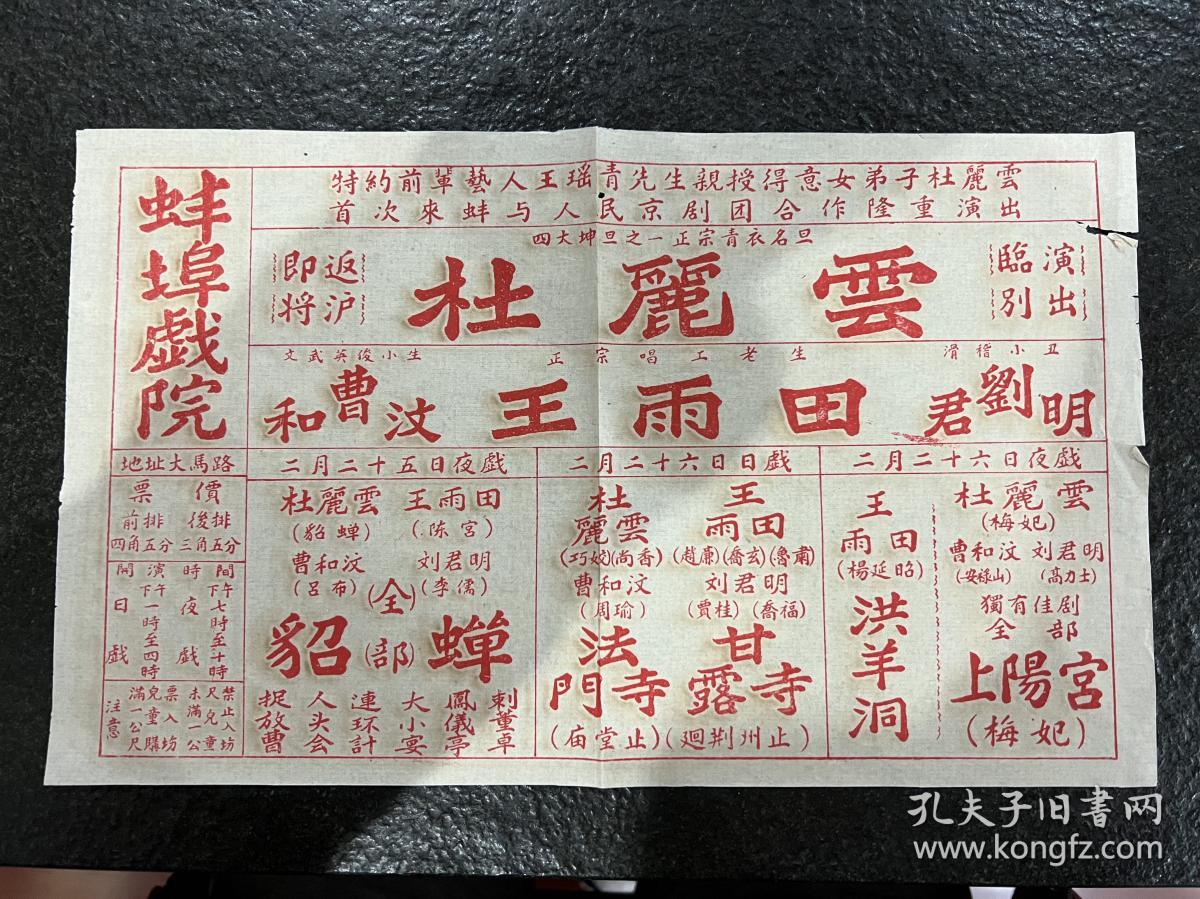 特約前輩藝人王瑶青先生親授得意女弟子杜麗雲
首次來蚌与人民京剧团合作隆重演出
四大坤旦之一正宗青衣名旦
即将返沪
杜麗雲
臨别演出
文武英俊小生
曹和汶
正宗唱工老生
王雨田
滑稽小丑
劉君明
蚌埠戯院
地址大馬路
票價
前排 後排
四角五分 三角五分
開演時間
日戯 下午一時至四時
夜戯 下午七時至十時
注意
滿一公尺兒童購票入坊
未滿一公尺兒童禁止入坊
二月二十五日夜戯
杜麗雲 王雨田
(貂蝉) (陈宮)
曹和汶 刘君明
(呂布) (李儒)
(全部)
貂蝉
捉放曹 人头会 連环計 大小宴 鳳儀亭 刺董卓
二月二十六日日戯
杜麗雲 王雨田
(巧姣)(尚香) (趙廉)(喬玄)(魯肅)
曹和汶 刘君明
(周瑜) (賈桂)(喬福)
法門寺 甘露寺
(庙堂止) (廻荆州止)
二月二十六日夜戯
王雨田
(楊延昭)
洪羊洞
杜麗雲
(梅妃)
曹和汶 刘君明
(安祿山) (高力士)
獨有佳剧
全部
上陽宮
(梅妃)
孔夫子旧書网
www.kongfz.com